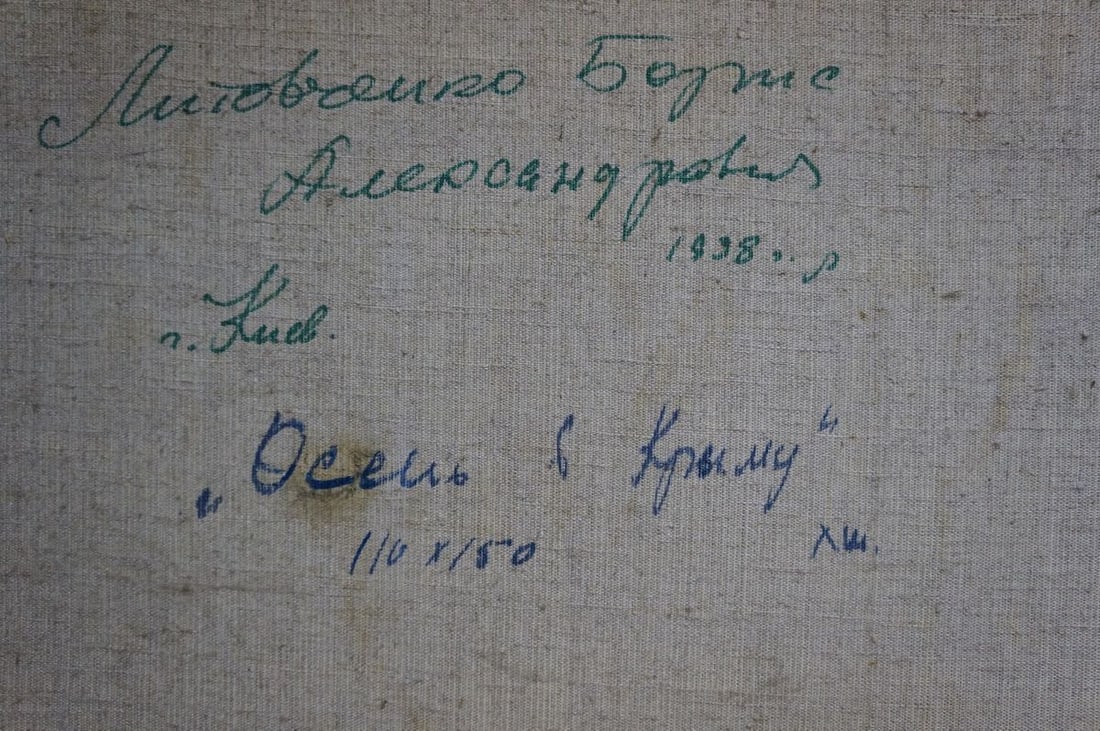 Литовченко Борис
Александрович
1938 г. р
г. Киев.
„Осень в Крыму“
110 х 150 хм.